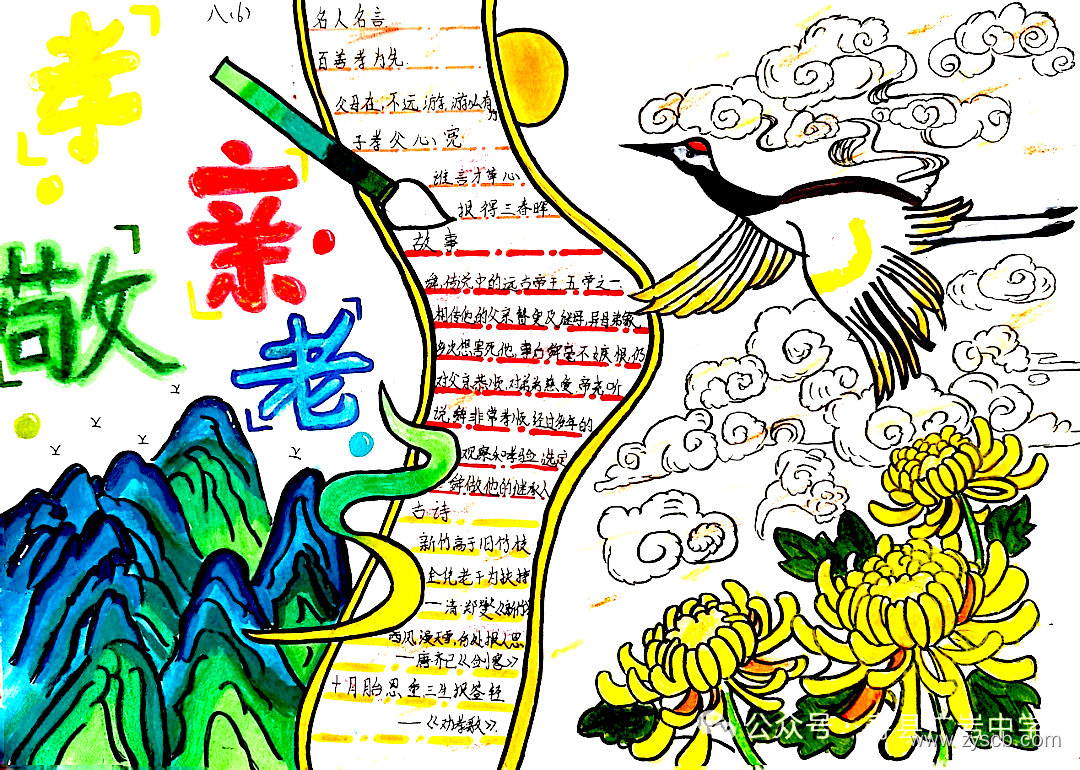 八(6)
孝
亲
敬
老
名人名言
百善孝为先
父母在,不远游,游必有方
子孝父心宽
谁言寸草心
报得三春晖
故事
舜,传说中的远古帝王五帝之一
相传他的父亲瞽叟及继母,异母弟象,
多次想害死他,事后舜毫不嫉恨,仍
对父亲恭顺,对弟弟慈爱,帝尧听
说,舜非常孝顺,经过多年的
观察和考验,选定
舜做他的继承人
古诗
新竹高于旧竹枝
全凭老干为扶持
——清·郑燮《新竹》
西风漫天雪,何处报人思
——唐齐己《剑客》
十月胎恩重三生报答轻
——《劝孝歌》
公众号
县广寺中学
www.zyscb.com